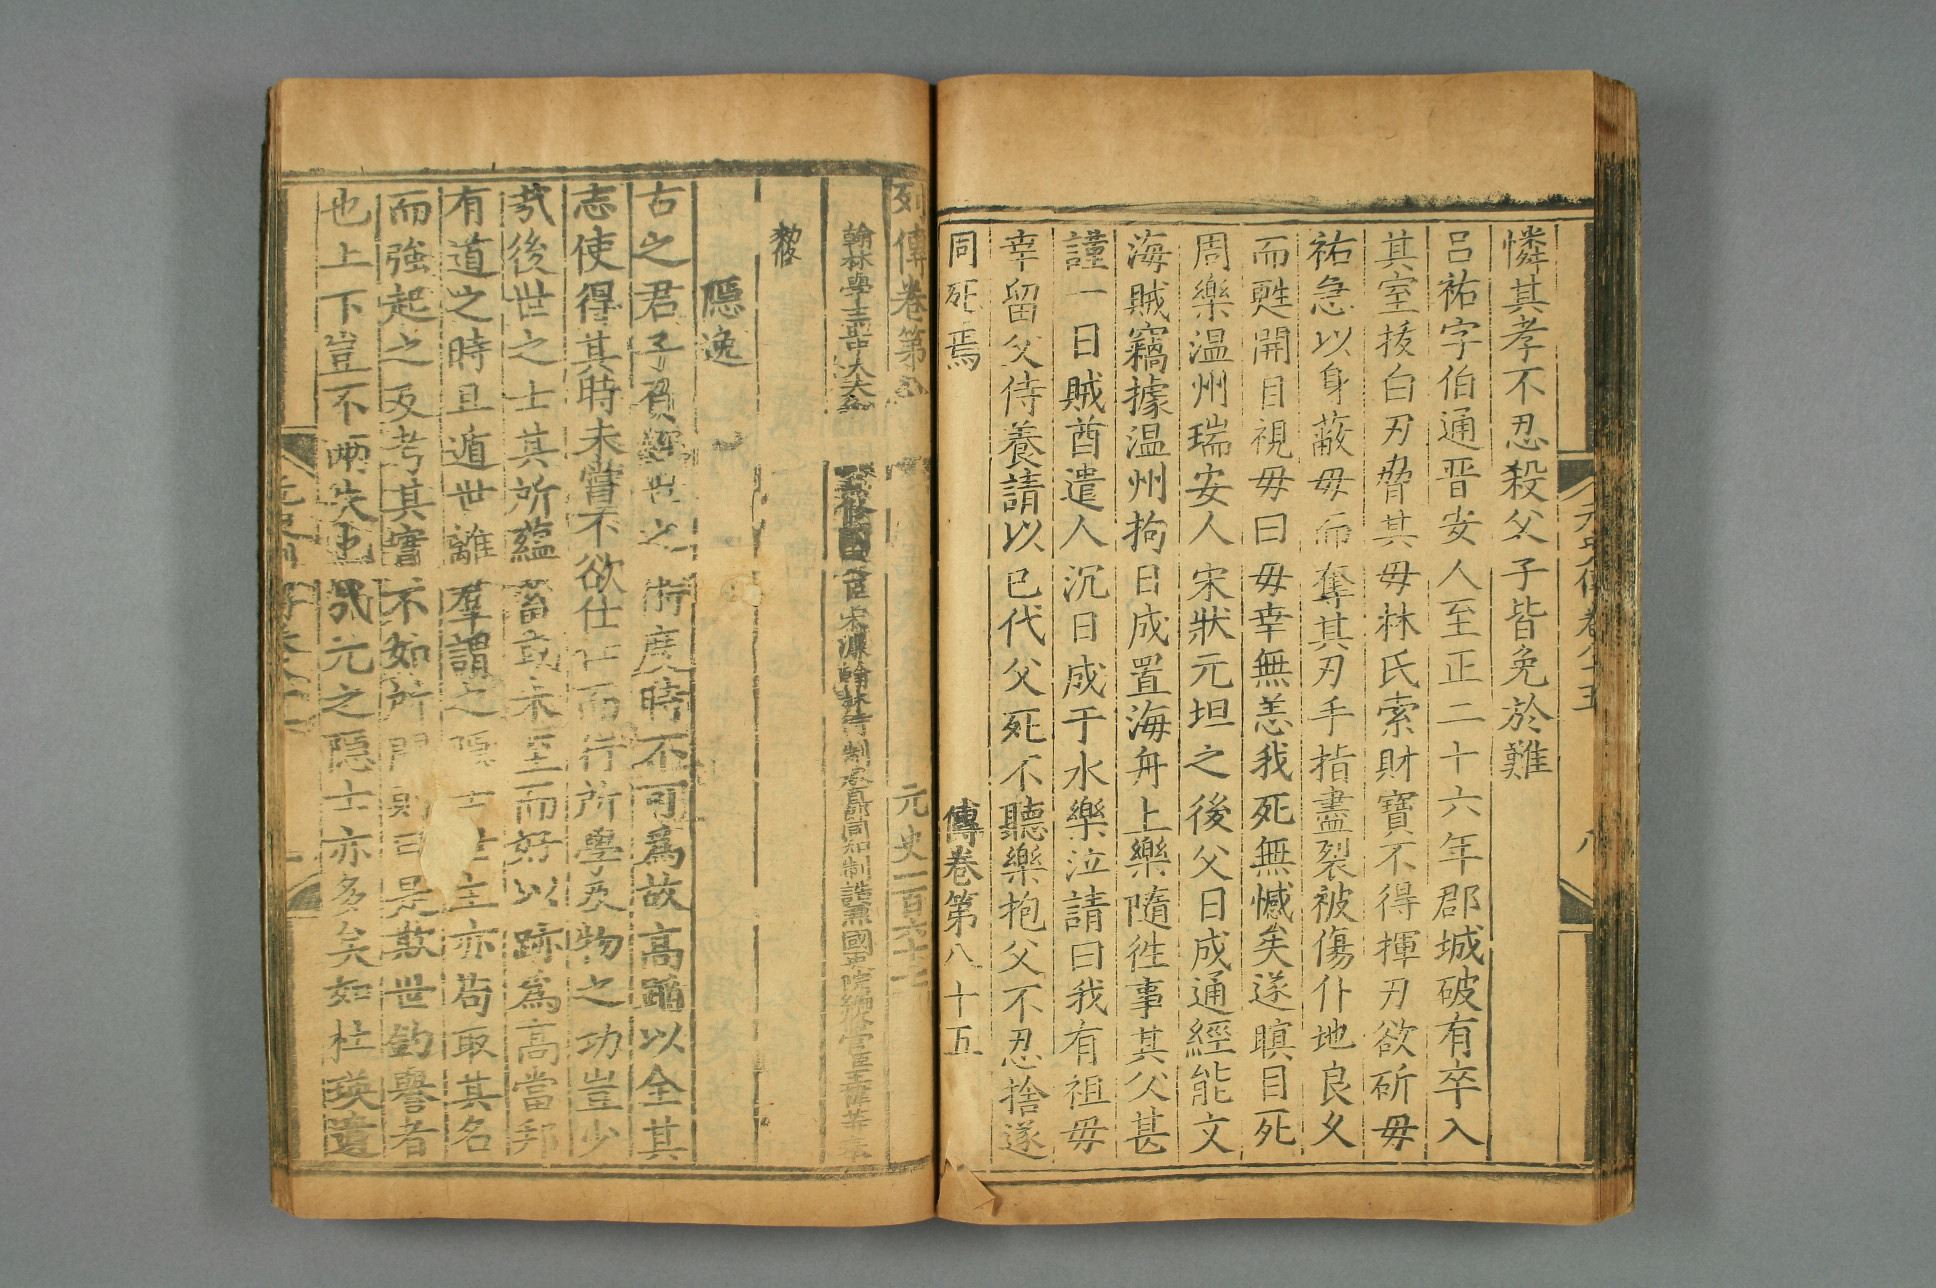 憐其孝不忍殺父子皆免於難
吕祐字伯通晋安人至正二十六年郡城破有卒入
其室拔白刃脅其母林氏索財寶不得揮刃欲斫母
祐急以身蔽母而奪其刃手指盡裂被傷仆地良久
而甦開目視母曰母幸無恙我死無憾矣遂瞑目死
周樂温州瑞安人宋狀元坦之後父日成通經能文
海賊竊據温州拘日成置海舟上樂隨徃事其父甚
謹一日賊酋遣人沉日成于水樂泣請曰我有祖母
幸留父侍養請以已代父死不聽樂抱父不忍捨遂
同死焉
傳卷第八十五
列傳卷第 元史一百
翰林學士 中大夫 修國史臣宋濂翰林待制承直郎同知制誥兼國史院編修官臣王褘等奉
勑修
隱逸
古之君子負經世之 術度時不可爲故高蹈以全其
志使得其時未嘗不欲仕仕而行所學及物之功豈少
㢤後世之士其所蘊蓄或未至而好以跡爲高當邦
有道之時且遁世離羣謂之隱士世主亦苟取其名
而強起之及考其實不如所聞則曰是欺世釣譽者
也上下豈不兩失也㢤元之隱士亦多矣如杜瑛遺